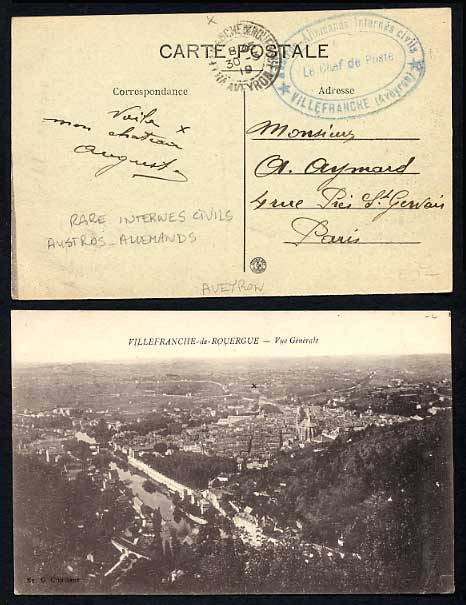 CARTE POSTALE
Allemands Internés civils
Le Chef de Poste
VILLEFRANCHE (Aveyron)
30 -9
19
AVEYRON
Correspondance
Adresse
Voila
mon chateau
Auguste
Monsieur
A. Aymard
4 rue Près St Gervais
Paris
RARE INTERNES CIVILS
AUSTROS-ALLEMANDS
AVEYRON
VILLEFRANCHE-de-ROUERGUE — Vue Générale